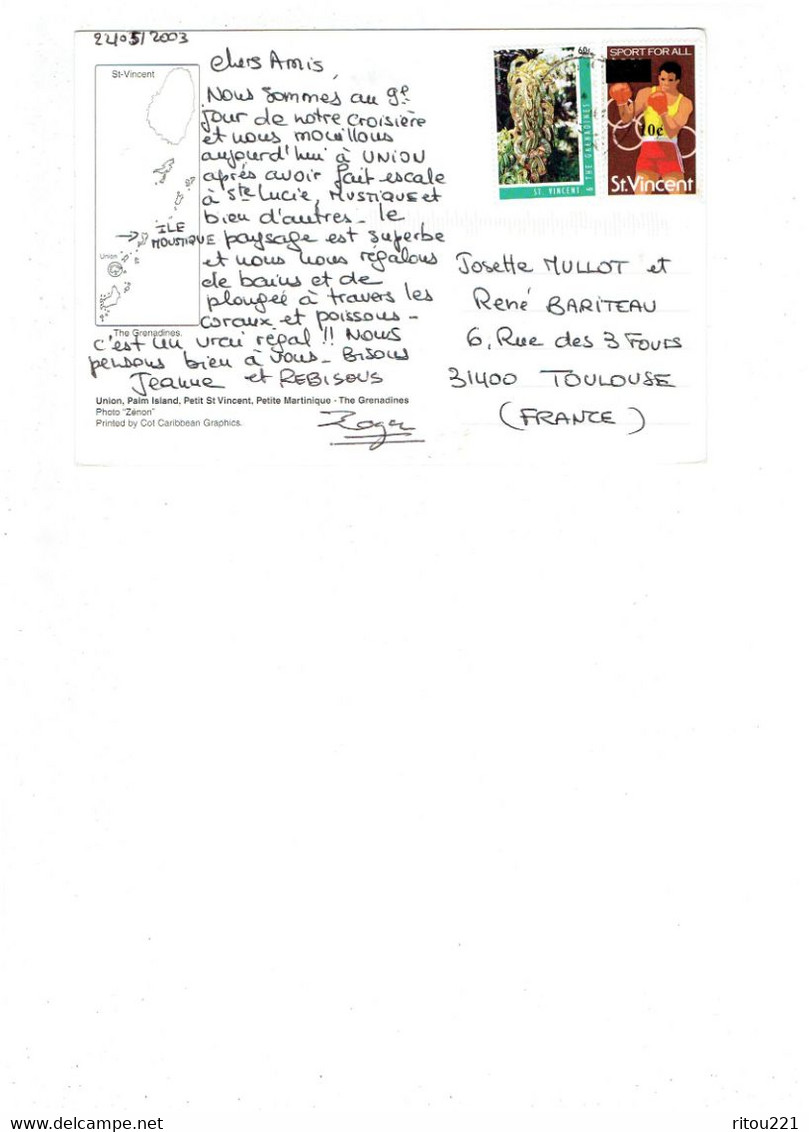 24051 2003
St-Vincent
Chers Amis,
Nous sommes au 9e
jour de notre croisière
et nous mouillons
aujourd'hui à UNION
après avoir fait escale
à Ste Lucie, MUSTIQUE et
bien d'autres - le
paysage est superbe
et nous nous régalons
de bains et de
plongée à travers les
coraux et poissons -
c'est un vrai régal !! Nous
pensons bien à vous - Bisous
Jeanne et REBISOUS
Roger
ILE
MOUSTIQUE
Union
The Grenadines.
Union, Palm Island, Petit St Vincent, Petite Martinique - The Grenadines
Photo "Zénon"
Printed by Cot Caribbean Graphics.
60c
ST. VINCENT & THE GRENADINES
SPORT FOR ALL
10¢
St.Vincent
Josette MULLOT et
René BARITEAU
6, Rue des 3 Fours
31400 TOULOUSE
(FRANCE)
delcampe.net
ritou221